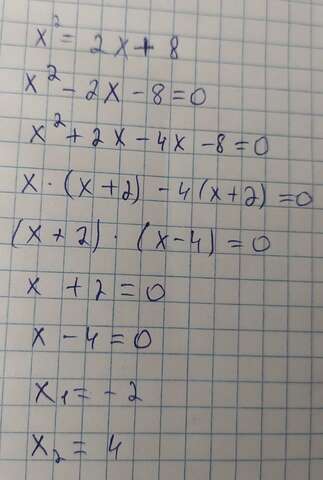 x² = 2x + 8
x² - 2x - 8 = 0
x² + 2x - 4x - 8 = 0
x · (x + 2) - 4(x + 2) = 0
(x + 2) · (x - 4) = 0
x + 2 = 0
x - 4 = 0
x₁ = - 2
x₂ = 4